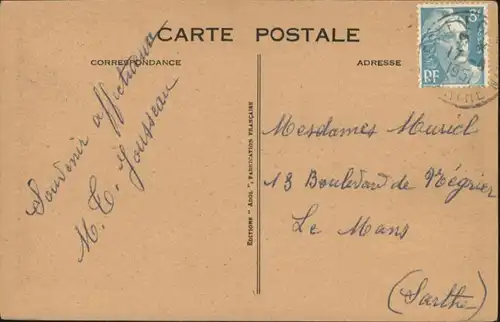 CARTE POSTALE
CORRESPONDANCE
ADRESSE
Souvenir affectueux
M. T. Jousseau
EDITIONS "ADOL", FABRICATION FRANÇAISE
RF
Mesdames Muriel
13 Boulevard de Négrier
Le Mans
(Sarthe)